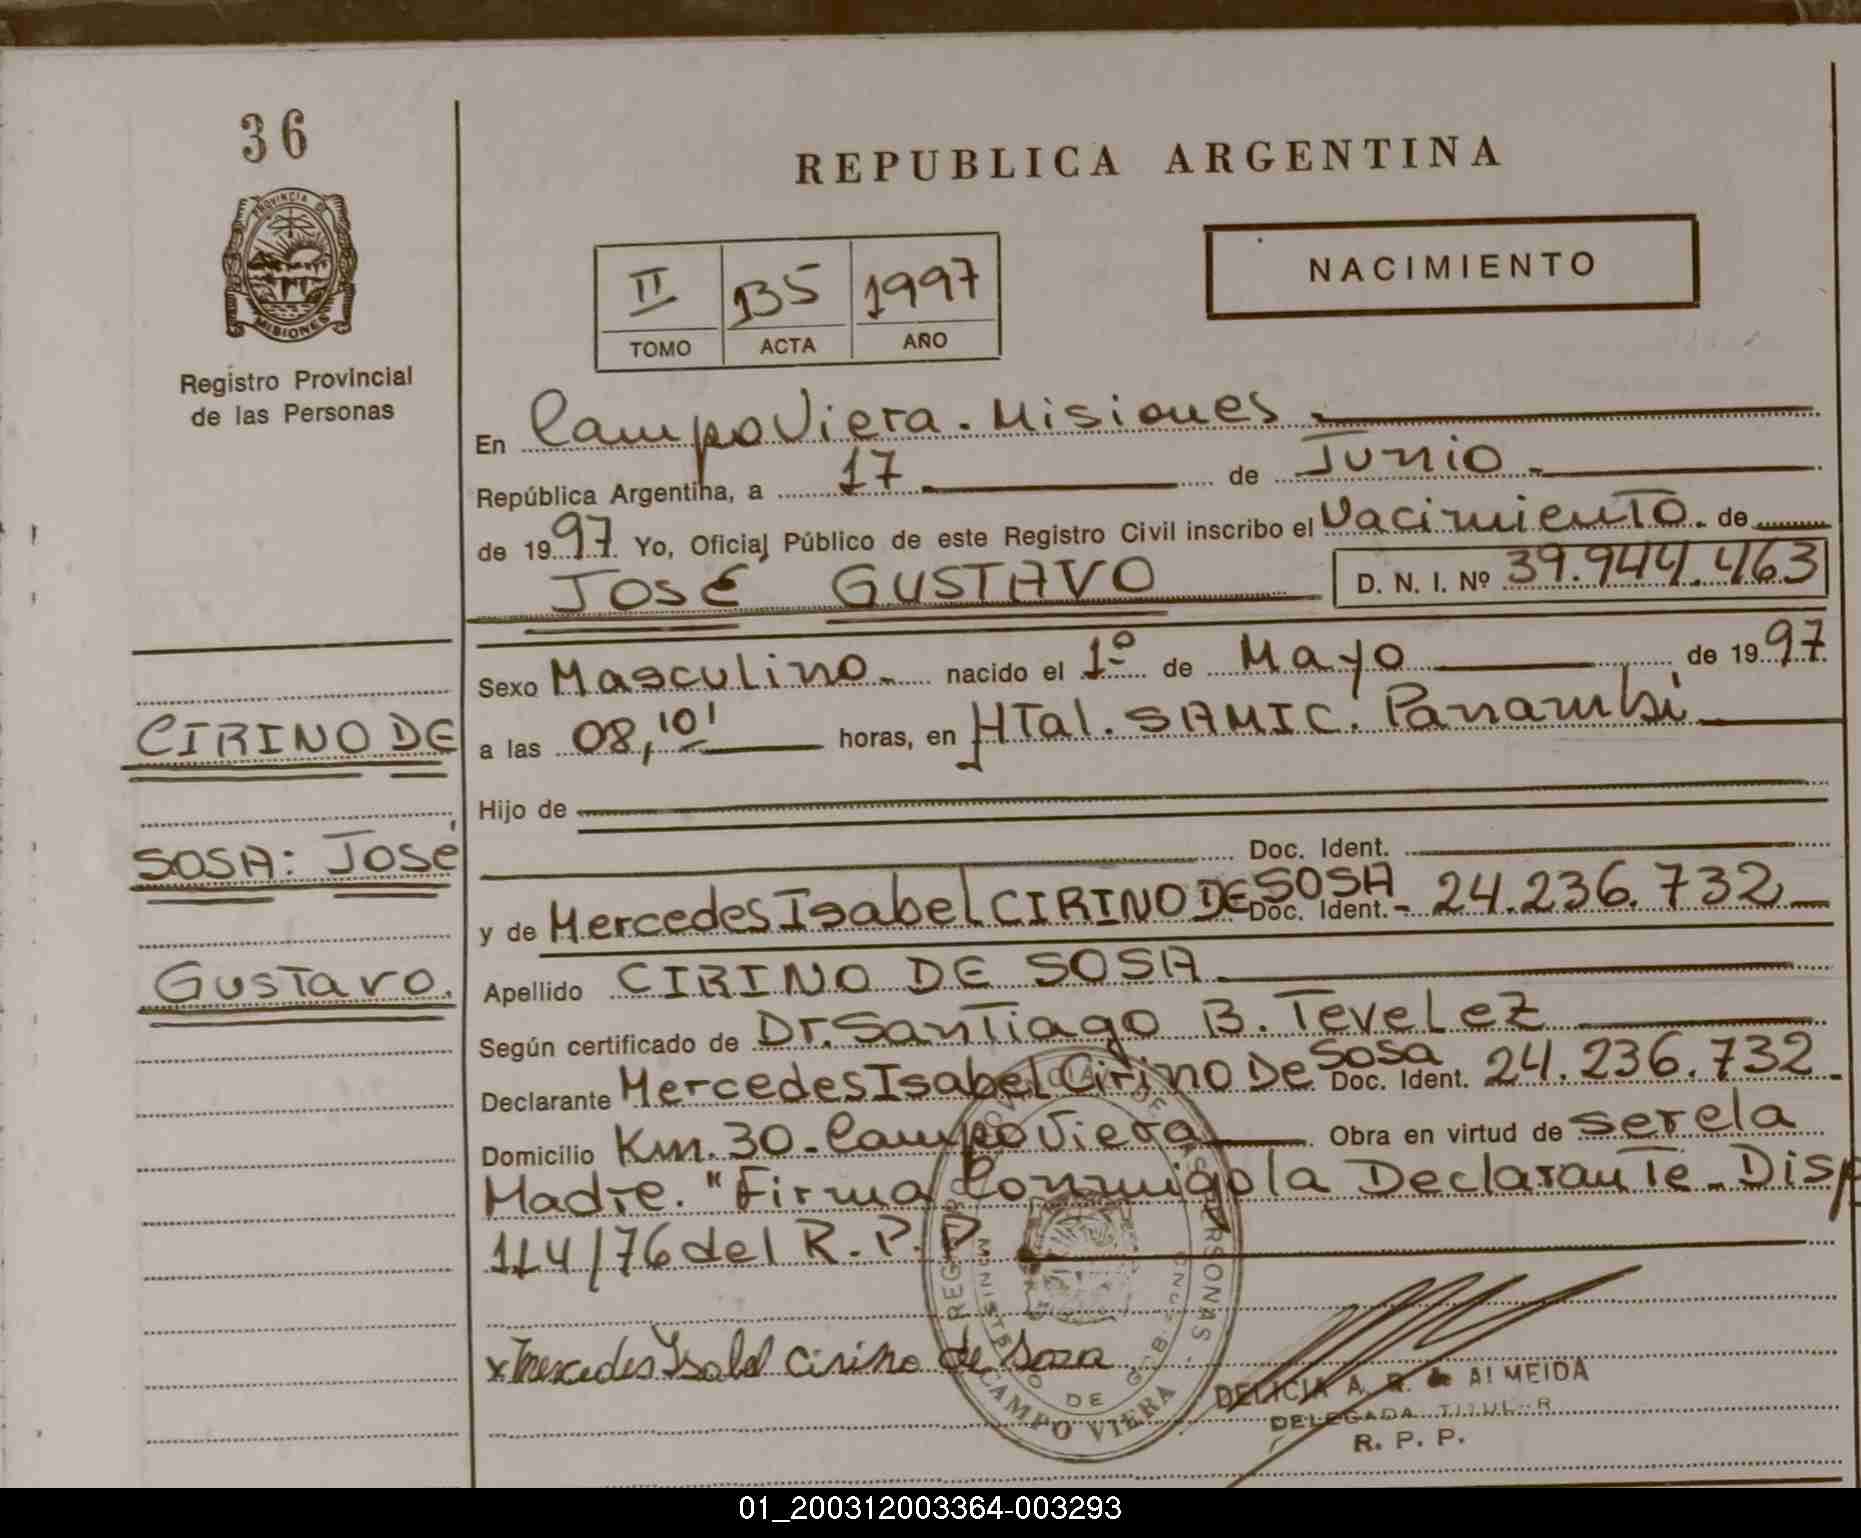 36
PROVINCIA DE
MISIONES
Registro Provincial
de las Personas
CIRINO DE
SOSA: José
Gustavo.
REPUBLICA ARGENTINA
II 135 1997
TOMO ACTA AÑO
NACIMIENTO
En Campo Viera. Misiones.
República Argentina, a 17 de Junio.
de 1997. Yo, Oficial Público de este Registro Civil inscribo el Nacimiento. de
JOSÉ GUSTAVO D. N. I. Nº 39.944.463
Sexo Masculino. nacido el 1º de Mayo de 1997.
a las 08,10' horas, en HTal. SAMIC. Panambi
Hijo de
Doc. Ident.
y de Mercedes Isabel CIRINO DE SOSA Doc. Ident. - 24.236.732
Apellido CIRINO DE SOSA.
Según certificado de Dr. Santiago B. Tevelez
Declarante Mercedes Isabel Cirino De Sosa Doc. Ident. 24.236.732.
Domicilio Km. 30 - Campo Viera Obra en virtud de ser ela
Madre. "Firma Conmigo la Declarante. Disp
114/76 del R. P. P.
x Mercedes Isabel Cirino de Soza
CAMPO VIERA
DELICIA A. R. de ALMEIDA
DELEGADA TITULAR
R. P. P.
01_200312003364-003293